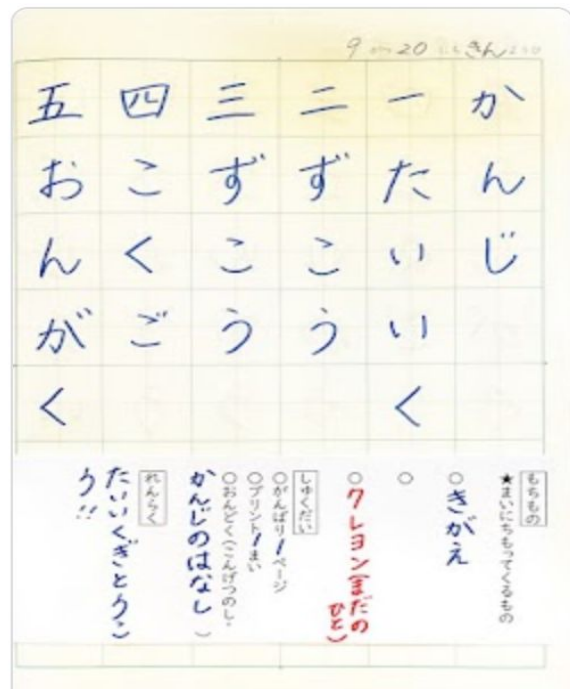 9 20 きん
かんじ
一たいいく
二ずこう
三ずこう
四こくご
五おんがく
もちもの
★まいにちもってくるもの
○きがえ
○
○クレヨン(まだの
ひと)
しゅくだい
○がんばり1ページ
○プリント1まい
○おんどく(こんげつのし・
かんじのはなし)
れんらく
たいいくぎとうこ
う!!